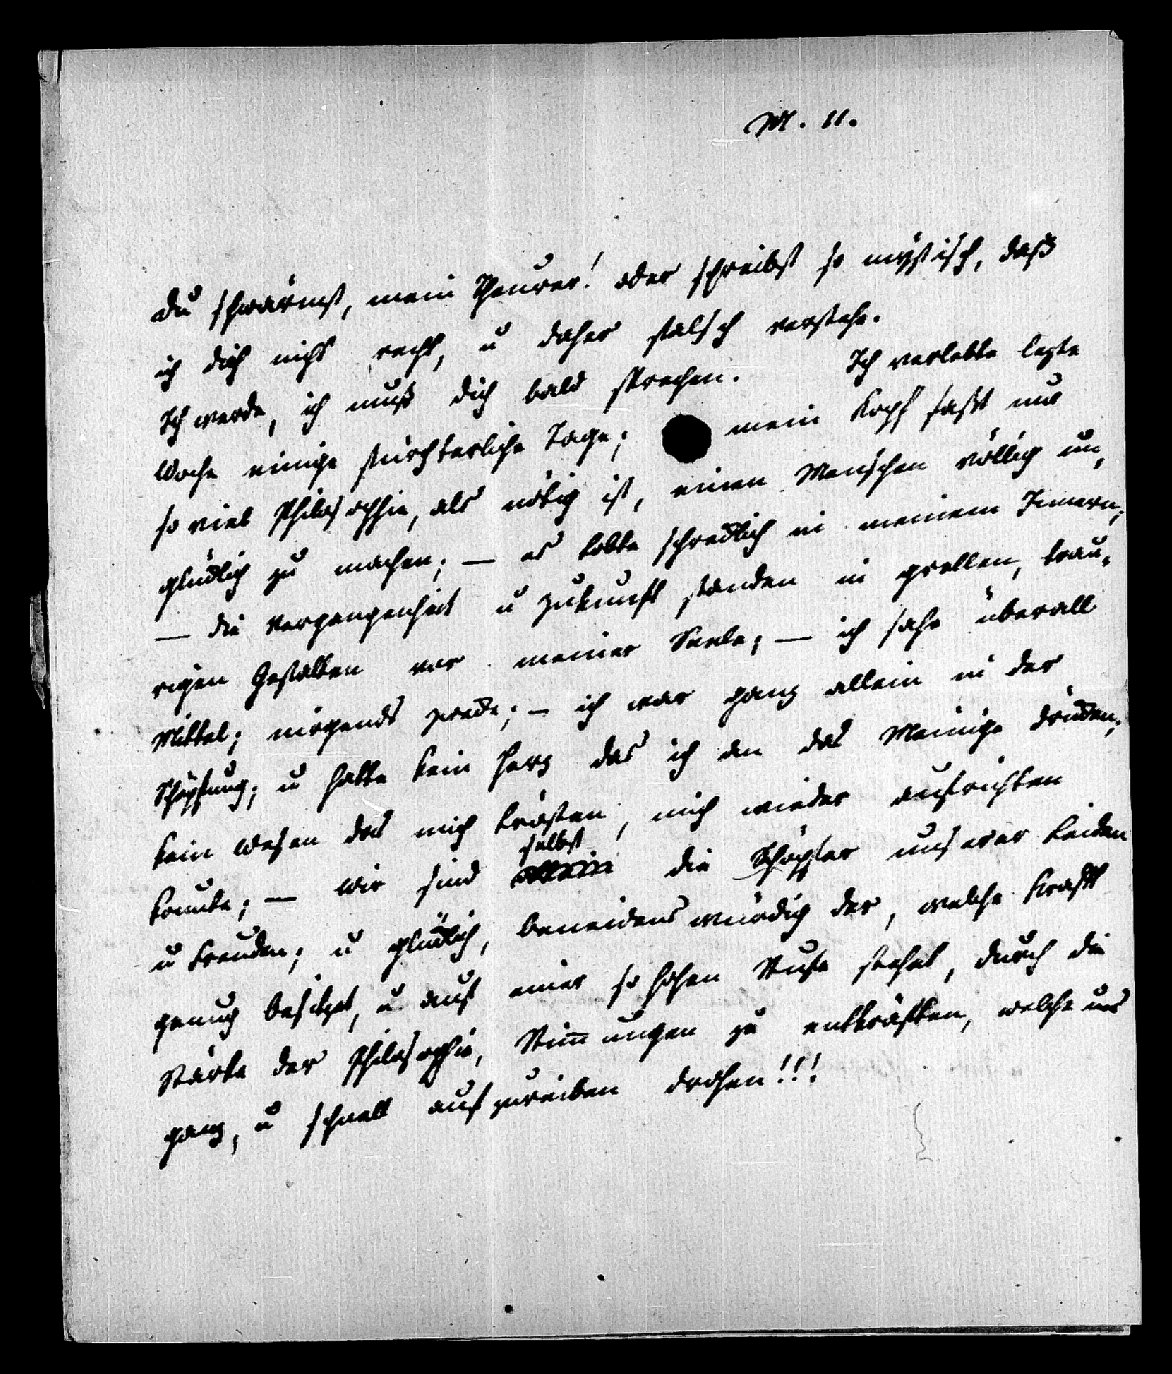 M. 11.
Du schwärmst, mein Theurer! oder schreibst so mystisch, daß
ich dich nicht recht, u daher falsch verstehe.
Ich werde, ich muß dich bald sprechen. Ich verlebte lezte
Woche einige fürchterliche Tage; mein Kopf faßt nur
so viel Philosophie, als nötig ist, einen Menschen völlig un-
glücklich zu machen; — es tobte schrecklich in meinem Innern;
— die Vergangenheit u Zukunft standen in grellen, trau-
rigen Gestalten vor meiner Seele; — ich sahe überall
Mittel; nirgends Zwecke; — ich war ganz allein in der
Schöpfung; u hatte kein Herz das ich an das Meinige drücken;
kein Wesen das mich trösten, mich wieder aufrichten
konnte; — wir sind selbst die Schöpfer unserer Leiden
u Freuden; u glücklich, beneidenswürdig der, welche Kraft
genug besitzt, u auf einer so hohen Stufe stehet, durch die
Stärke der Philosophie, Stimmungen zu entkräften, welche uns
ganz, u schnell aufzureiben drohen!!!